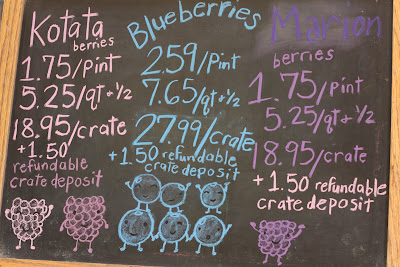 Kotata
berries
1.75/Pint
5.25/qt + 1/2
18.95/crate
+1.50
refundable
crate deposit
Blueberries
2.59/Pint
7.65/qt + 1/2
27.99/crate
+1.50 refundable
crate deposit
Marion
berries
1.75/Pint
5.25/qt + 1/2
18.95/crate
+ 1.50 refundable
crate deposit